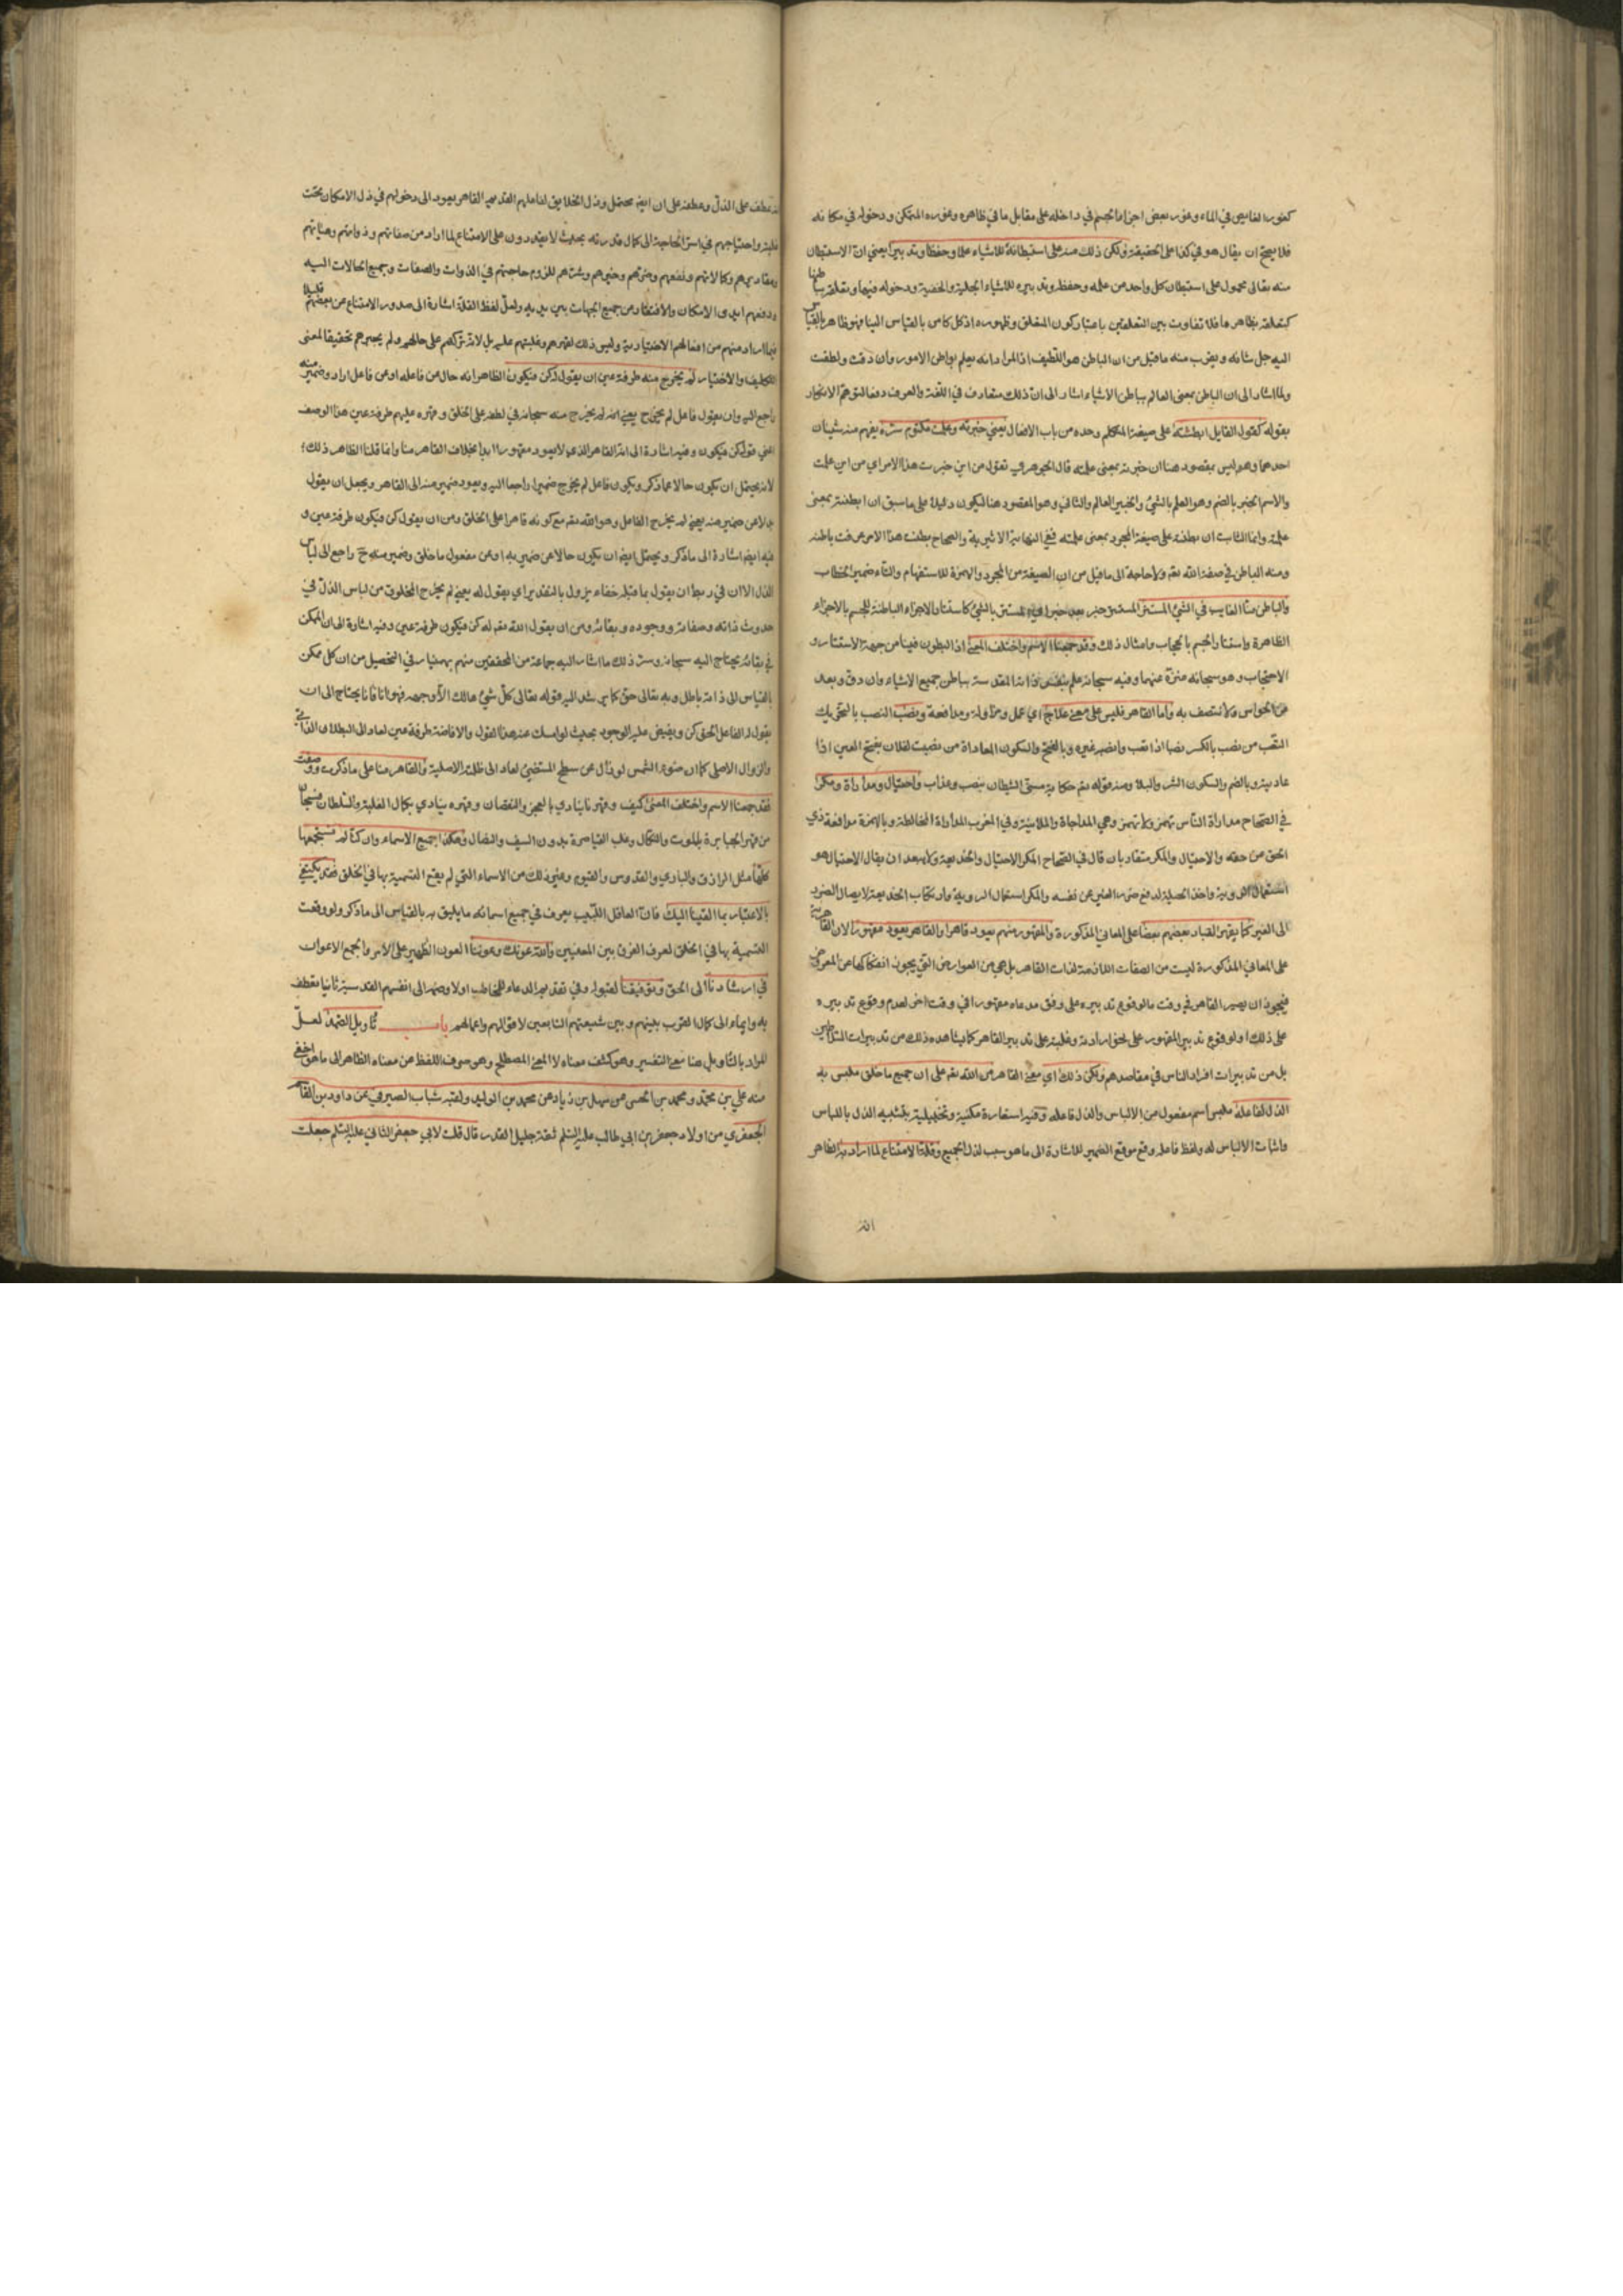 كغور الغايص في الماء وغور بعض اجزاء الجسم في داخله على مقابل ما في ظاهره وغوره المتمكن ودخوله في مكانه
فلا يصح ان يقال هو في كذا على الحقيقة ولكن ذلك منه على استبطانه للاشياء علما وحفظا وتدبيرا يعني ان الاستبطان
منه تعالى محمول على استبطان كل واحد من علمه وحفظه وتدبيره للاشياء الجلية والخفية ودخوله فيها وتعلقه بباطنها
كتعلقه بظاهرها فلا تفاوت بين التعلقين باعتبار كون المتعلق وظهوره اذ كل كامن بالقياس الينا فهو ظاهر بالقياس
اليه جل شانه ويقرب منه ما قيل من ان الباطن هو اللطيف اذ المراد انه يعلم بواطن الامور وان دقت ولطفت
ولما اشار الى ان الباطن بمعنى العالم بباطن الاشياء اشار الى ان ذلك متعارف في اللغة والعرف دفعا لتوهم الانكار
بقوله كقول القايل ابطنته على صيغة المتكلم وحده من باب الافعال يعني خبرته وعلمت مكتوم سره يفهم منه شيئان
احدهما وهو ليس بمقصود هنا ان خبرته بمعنى علمته قال الجوهري تقول من اين خبرت هذا الامر اي من اين علمت
والاسم الخبر بالضم وهو العلم بالشئ والخبير العالم والثاني وهو المقصود هنا ليكون دليلا على ما سبق ان ابطنته بمعنى
علمته وانما الثابت ان بطنته على صيغة المجرد بمعنى علمته ففي النهاية الاثيرية والصحاح بطنت هذا الامر عرفت باطنه
ومنه الباطن في صفة الله تعم ولا حاجة الى ما قيل من ان الصيغة من المجرد والهمزة للاستفهام والتاء ضمير الخطاب
والباطن منا الغايب في الشئ المستتر المستتر خبر بعد خبر اي المستتر بالشئ كاستتار الاجزاء الباطنة للجسم بالاجزاء
الظاهرة واستتار الجسم بالحجاب وامثال ذلك وقد جمعنا الاسم واختلف المعنى اذ البطون فينا من جهة الاستتار و
الاحتجاب وهو سبحانه منزه عنهما وفيه سبحانه علم بنفس ذاته المقدسة بباطن جميع الاشياء وان دق وبعد
عن الحواس ولا نتصف به واما القاهر فليس على معنى علاج اي عمل ومزاولة ومدافعة ونصب النصب بالتحريك
التعب من نصب بالكسر نصبا اذا تعب وانصبه غيره وبالفتح والسكون المعاداة من نصبت لفلان بفتح العين اذا
عاديته وبالضم والسكون الشر والبلاء ومنه قوله تعم حكاية مسني الشيطان بنصب وعذاب واحتيال ومداراة ومكر
في الصحاح مداراة الناس تهمز ولا تهمز وهي المداجاة والملاينة وفي المغرب المداراة المخالطة وبالهمزة مدافعة ذي
الحق عن حقه والاحتيال والمكر متقاربان قال في الصحاح المكر الاحتيال والخديعة ولا يبعد ان يقال الاحتيال هو
استعمال الروية واخذ الحيلة لدفع ضرر الغير عن نفسه والمكر استعمال الروية وارتكاب الخديعة لايصال الضرر
الى الغير كما يقهر العباد بعضهم بعضا على المعاني المذكورة والمقهور منهم يعود قاهرا والقاهر يعود مقهورا لان القاهرية
على المعاني المذكورة ليست من الصفات اللازمة لذات القاهر بل هي من العوارض التي يجوز انفكاكها عن المعروض
فيجوز ان يصير القاهر في وقت ما لوقوع تدبيره على وفق مدعاه مقهورا في وقت اخر لعدم وقوع تدبيره
على ذلك او لوقوع تدبير المقهور على نحو ارادته وغلبته على تدبير القاهر كما يشاهد ذلك من تدبيرات السلاطين
بل من تدبيرات افراد الناس في مقاصدهم ولكن ذلك اي معنى القاهر من الله تعم على ان جميع ما خلق ملبس به
الذل لفاعله ملبس اسم مفعول من الالباس والذل فاعله وفيه استعارة مكنية وتخييلية بتشبيه الذل باللباس
واثبات الالباس له ولفظ فاعله وقع موقع الضمير للاشارة الى ما هو سبب لذل الجميع وقلة الامتناع لما اراد به الظاهر
انه
انه عطف على الذل وعطفه على ان ايضا محتمل وذل الخلايق لفاعلهم القديم القاهر يعود الى دخولهم في ذل الامكان تحت
غلبته واحتياجهم في اسر الحاجة الى كمال قدرته بحيث لا يقدرون على الامتناع لما اراد من صفاتهم وذواتهم وهيئاتهم
ومقاديرهم وكمالاتهم ونفعهم وضرهم وخيرهم وشرهم للزوم حاجتهم في الذوات والصفات وجميع الحالات اليه
ورفعهم ايدي الامكان والافتقار من جميع الجهات بين يديه ولعل لفظ القلة اشارة الى صدور الامتناع عن بعضهم قليلا
فيما اراد منهم من افعالهم الاختيارية وليس ذلك لقهرهم وغلبتهم عليه بل لانه تركهم على حالهم ولم يجبرهم تحقيقا لمعنى
التكليف والاختيار لم يخرج منه طرفة عين ان يقول له كن فيكون الظاهر انه حال من فاعله او من فاعل اراد وضمير منه
راجع اليه وان يقول فاعل لم يخرج يعني انه لم يخرج منه سبحانه في لطفه على الخلق وقهره عليهم طرفة عين هذا الوصف
اعني قول كن فيكون وفيه اشارة الى انه القاهر الذي لا يعود مقهورا ابدا بخلاف القاهر منا وانما قلنا الظاهر ذلك
لانه يحتمل ان يكون حالا عما ذكر ويكون فاعل لم يخرج ضميرا راجعا اليه ويعود ضمير منه الى القاهر ويجعل ان يقول
بدلا عن ضمير منه يعني لم يخرج الفاعل وهو الله تعم مع كونه قاهرا على الخلق ومن ان يقول كن فيكون طرفة عين و
فيه ايضا اشارة الى ما ذكر ويحتمل ايضا ان يكون حالا عن ضمير به او عن مفعول ما خلق وضمير منه ح راجع الى لباس
الذل الا ان في ربط ان يقول بما قبله خفاء يزول بالتقدير اي يقول له يعني لم يخرج المخلوق من لباس الذل في
حدوث ذاته وصفاته ووجوده وبقائه ومن ان يقول الله تعم له كن فيكون طرفة عين وفيه اشارة الى ان الممكن
في بقائه يحتاج اليه سبحانه وسر ذلك ما اشار اليه جماعة من المحققين منهم بهمنيار في التحصيل من ان كل ممكن
بالقياس الى ذاته باطل وبه تعالى حق كما يرشد اليه قوله تعالى كل شئ هالك الا وجهه فهو انا فانا يحتاج الى ان
يقول له الفاعل الحق كن ويفيض عليه الوجود بحيث لو امسك عنه هذا القول والافاضة طرفة عين لعاد الى البطلان الذاتي
والزوال الاصلي كما ان ضوء الشمس لو زال عن سطح المستضئ لعاد الى ظلمته الاصلية والقاهر منا على ما ذكرت ووصفت
فقد جمعنا الاسم واختلف المعنى كيف وقهرنا ينادي بالعجز والنقصان وقهره ينادي بكمال الغلبة والسلطان فسبحان
من قهر الجبابرة بالموت والنكال وغلب القياصرة بدون السيف والنضال وهكذا جميع الاسماء وان كنا لم نستجمعها
كلها مثل الرازق والباري والقدوس والقيوم وغير ذلك من الاسماء التي لم يقع التسمية بها في الخلق فقد يكتفي
بالاعتبار بما القينا اليك فان العاقل اللبيب يعرف في جميع اسمائه ما يليق به بالقياس الى ما ذكر ولو وقعت
التسمية بها في الخلق لعرف الفرق بين المعنيين والله عونك وعوننا العون الظهير على الامر والجمع الاعوان
في ارشادنا الى الحق وتوفيقنا لقبوله وفي تقديم الدعاء للمخاطب اولا وضمه الى انفسهم القدسية ثانيا تعطف
به وايماء الى كمال القرب بينهم وبين شيعتهم التابعين لاقوالهم واعمالهم باب تاويل الصمد لعل
المراد بالتاويل هنا معنى التفسير وهو كشف معناه لا المعنى المصطلح وهو صرف اللفظ عن معناه الظاهر الى ما هو اخفى
منه علي بن محمد ومحمد بن الحسن عن سهل بن زياد عن محمد بن الوليد ولقبه شباب الصيرفي عن داود بن القاسم
الجعفري من اولاد جعفر بن ابي طالب عليه السلم ثقة جليل القدر قال قلت لابي جعفر الثاني عليه السلم جعلت